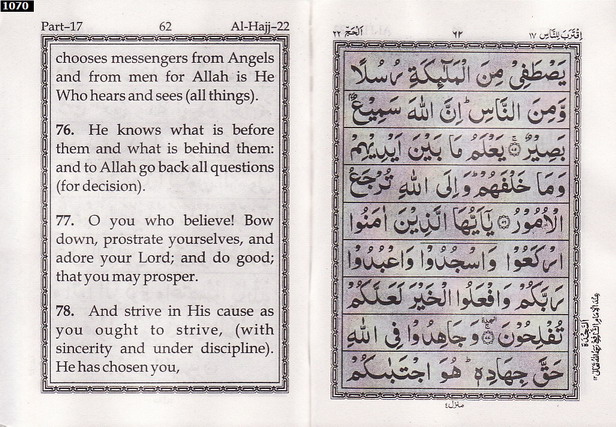 1070
Part–17 62 Al-Hajj–22
chooses messengers from Angels
and from men for Allah is He
Who hears and sees (all things).
76. He knows what is before
them and what is behind them:
and to Allah go back all questions
(for decision).
77. O you who believe! Bow
down, prostrate yourselves, and
adore your Lord; and do good;
that you may prosper.
78. And strive in His cause as
you ought to strive, (with
sincerity and under discipline).
He has chosen you,
اِقْتَرَبَ لِلنَّاسِ ١٧ ٦٢ اَلْحَجّ ٢٢
يَصْطَفِىْ مِنَ الْمَلٰٓئِكَةِ رُسُلًا
وَّمِنَ النَّاسِ ؕ اِنَّ اللّٰهَ سَمِيْعٌۢ
بَصِيْرٌ ۚ‏﴿۷۵﴾ يَعْلَمُ مَا بَيْنَ اَيْدِيْهِمْ
وَمَا خَلْفَهُمْ ؕ وَاِلَى اللّٰهِ تُرْجَعُ
الْاُمُوْرُ ﴿۷۶﴾ يٰۤاَيُّهَا الَّذِيْنَ اٰمَنُوا
ارْكَعُوْا وَاسْجُدُوْا وَاعْبُدُوْا
رَبَّكُمْ وَافْعَلُوا الْخَيْرَ لَعَلَّكُمْ
تُفْلِحُوْنَ ۩﴿۷۷﴾ وَجَاهِدُوْا فِى اللّٰهِ
حَقَّ جِهَادِهٖ ؕ هُوَ اجْتَبٰٮكُمْ
منزل٤